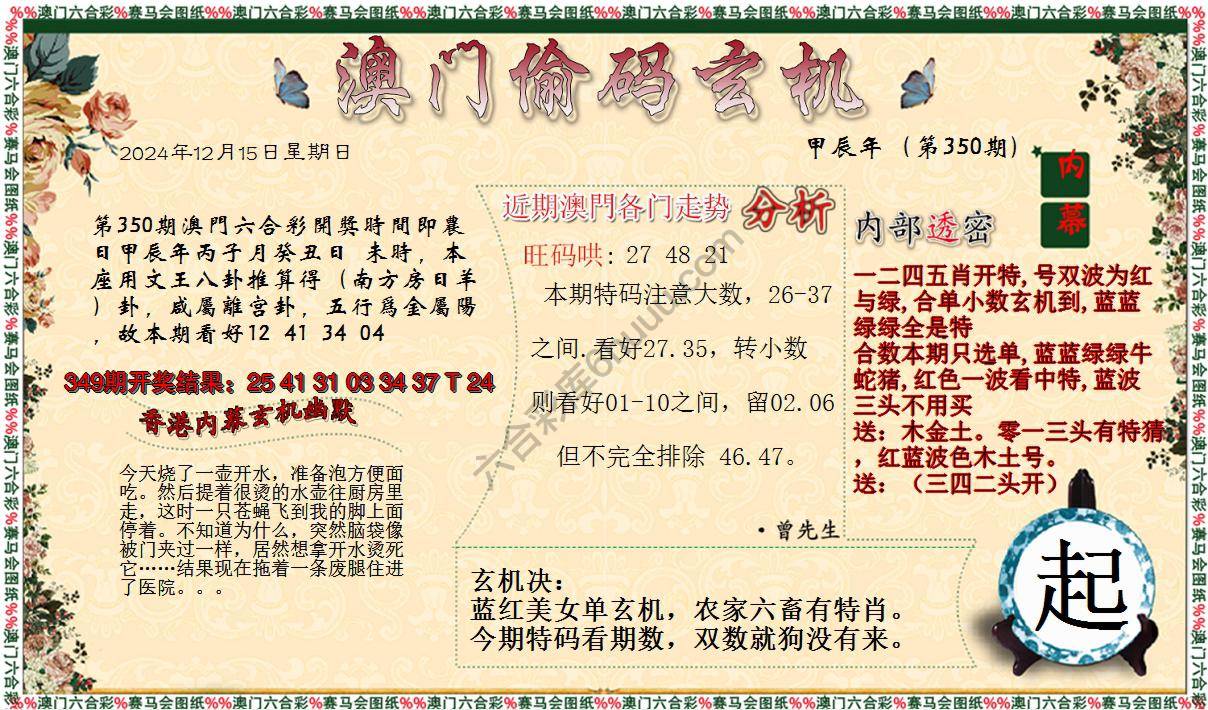 %%澳门六合彩%赛马会图纸%%澳门六合彩%赛马会图纸%%澳门六合彩%赛马会图纸%%澳门六合彩%赛马会图纸%%澳门六合彩%赛马会图纸%%澳门六合彩%赛马会图纸%%
澳门偷码玄机
2024年12月15日星期日
甲辰年 （第350期）
内幕
第350期澳門六合彩開獎時間即農
日甲辰年丙子月癸丑日 未時，本
座用文王八卦推算得（南方房日羊
）卦，咸屬離宫卦，五行爲金屬陽
，故本期看好12 41 34 04
349期开奖结果：25 41 31 03 34 37 T 24
香港内幕玄机幽默
今天烧了一壶开水，准备泡方便面
吃。然后提着很烫的水壶往厨房里
走，这时一只苍蝇飞到我的脚上面
停着。不知道为什么，突然脑袋像
被门夹过一样，居然想拿开水烫死
它……结果现在拖着一条废腿住进
了医院。。。
近期澳門各门走势 分析
旺码哄: 27 48 21
本期特码注意大数，26-37
之间.看好27.35，转小数
则看好01-10之间，留02.06
但不完全排除 46.47。
·曾先生
内部透密
一二四五肖开特,号双波为红
与绿,合单小数玄机到,蓝蓝
绿绿全是特
合数本期只选单,蓝蓝绿绿牛
蛇猪,红色一波看中特,蓝波
三头不用买
送：木金土。零一三头有特猜
，红蓝波色木土号。
送：（三四二头开）
玄机决：
蓝红美女单玄机，农家六畜有特肖。
今期特码看期数，双数就狗没有来。
起
%%澳门六合彩%赛马会图纸%%澳门六合彩%赛马会图纸%%澳门六合彩%赛马会图纸%%澳门六合彩%赛马会图纸%%澳门六合彩%赛马会图纸%%澳门六合彩%赛马会图纸%%